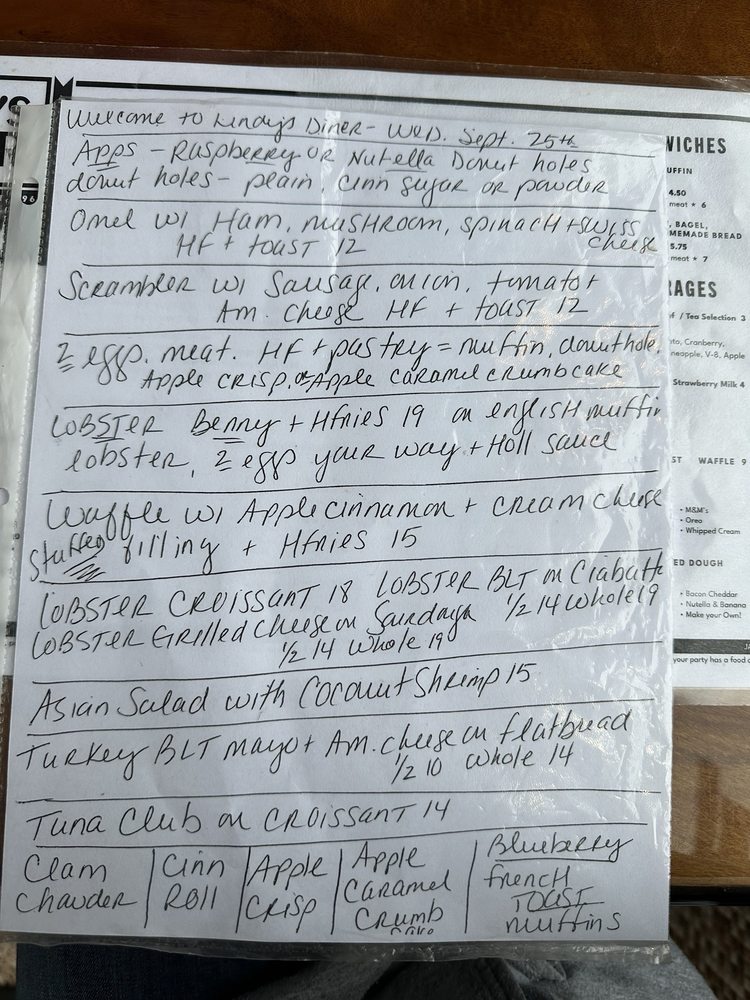 Welcome to Lindy's Diner - Wed. Sept. 25th
Apps - Raspberry or Nutella Donut holes
donut holes - plain, cinn sugar or powder
Omel w/ Ham, mushroom, spinach + swiss
cheese
HF + toast 12
Scrambler w/ Sausage, onion, tomato +
Am. cheese HF + toast 12
2 eggs. meat. HF + pastry = muffin, donut hole,
Apple crisp, or Apple caramel crumbcake
LOBSTER Benny + Hfries 19 on english muffin
lobster, 2 eggs your way + Holl sauce
Waffle w/ Apple cinnamon + cream cheese
Stuffed filling + Hfries 15
LOBSTER CROISSANT 18 LOBSTER BLT on Ciabatta
1/2 14 whole 19
LOBSTER Grilled Cheese on
1/2 14 whole 19
Asian Salad with Coconut Shrimp 15
Turkey BLT mayo + Am. cheese on flatbread
1/2 10 whole 14
Tuna Club on CROISSANT 14
Clam
Chowder
Cinn
Roll
Apple
CRISP
Apple
Caramel
Crumb
Cake
Blueberry
french
TOAST
muffins
WICHES
UFFIN
4.50
meat ★ 6
, BAGEL,
MEMADE BREAD
5.75
meat ★ 7
RAGES
/ Tea Selection 3
Cranberry,
neapple, V-8, Apple
Strawberry Milk 4
ST WAFFLE 9
• M&M's
• Oreo
• Whipped Cream
ED DOUGH
• Bacon Cheddar
• Nutella & Banana
• Make your Own!
your party has a food
96